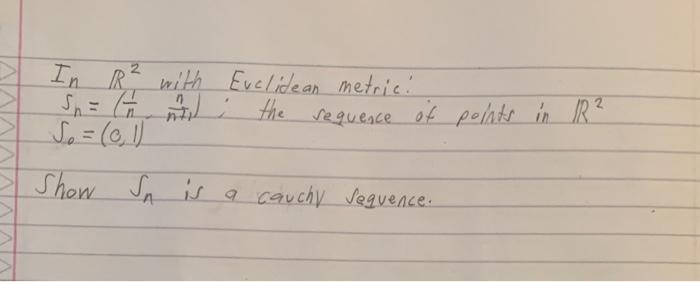 In ℝ² with Euclidean metric:
Sn = (1/n, n/n+1) ; the sequence of points in ℝ²
S₀ = (0,1)
Show Sn is a cauchy sequence.